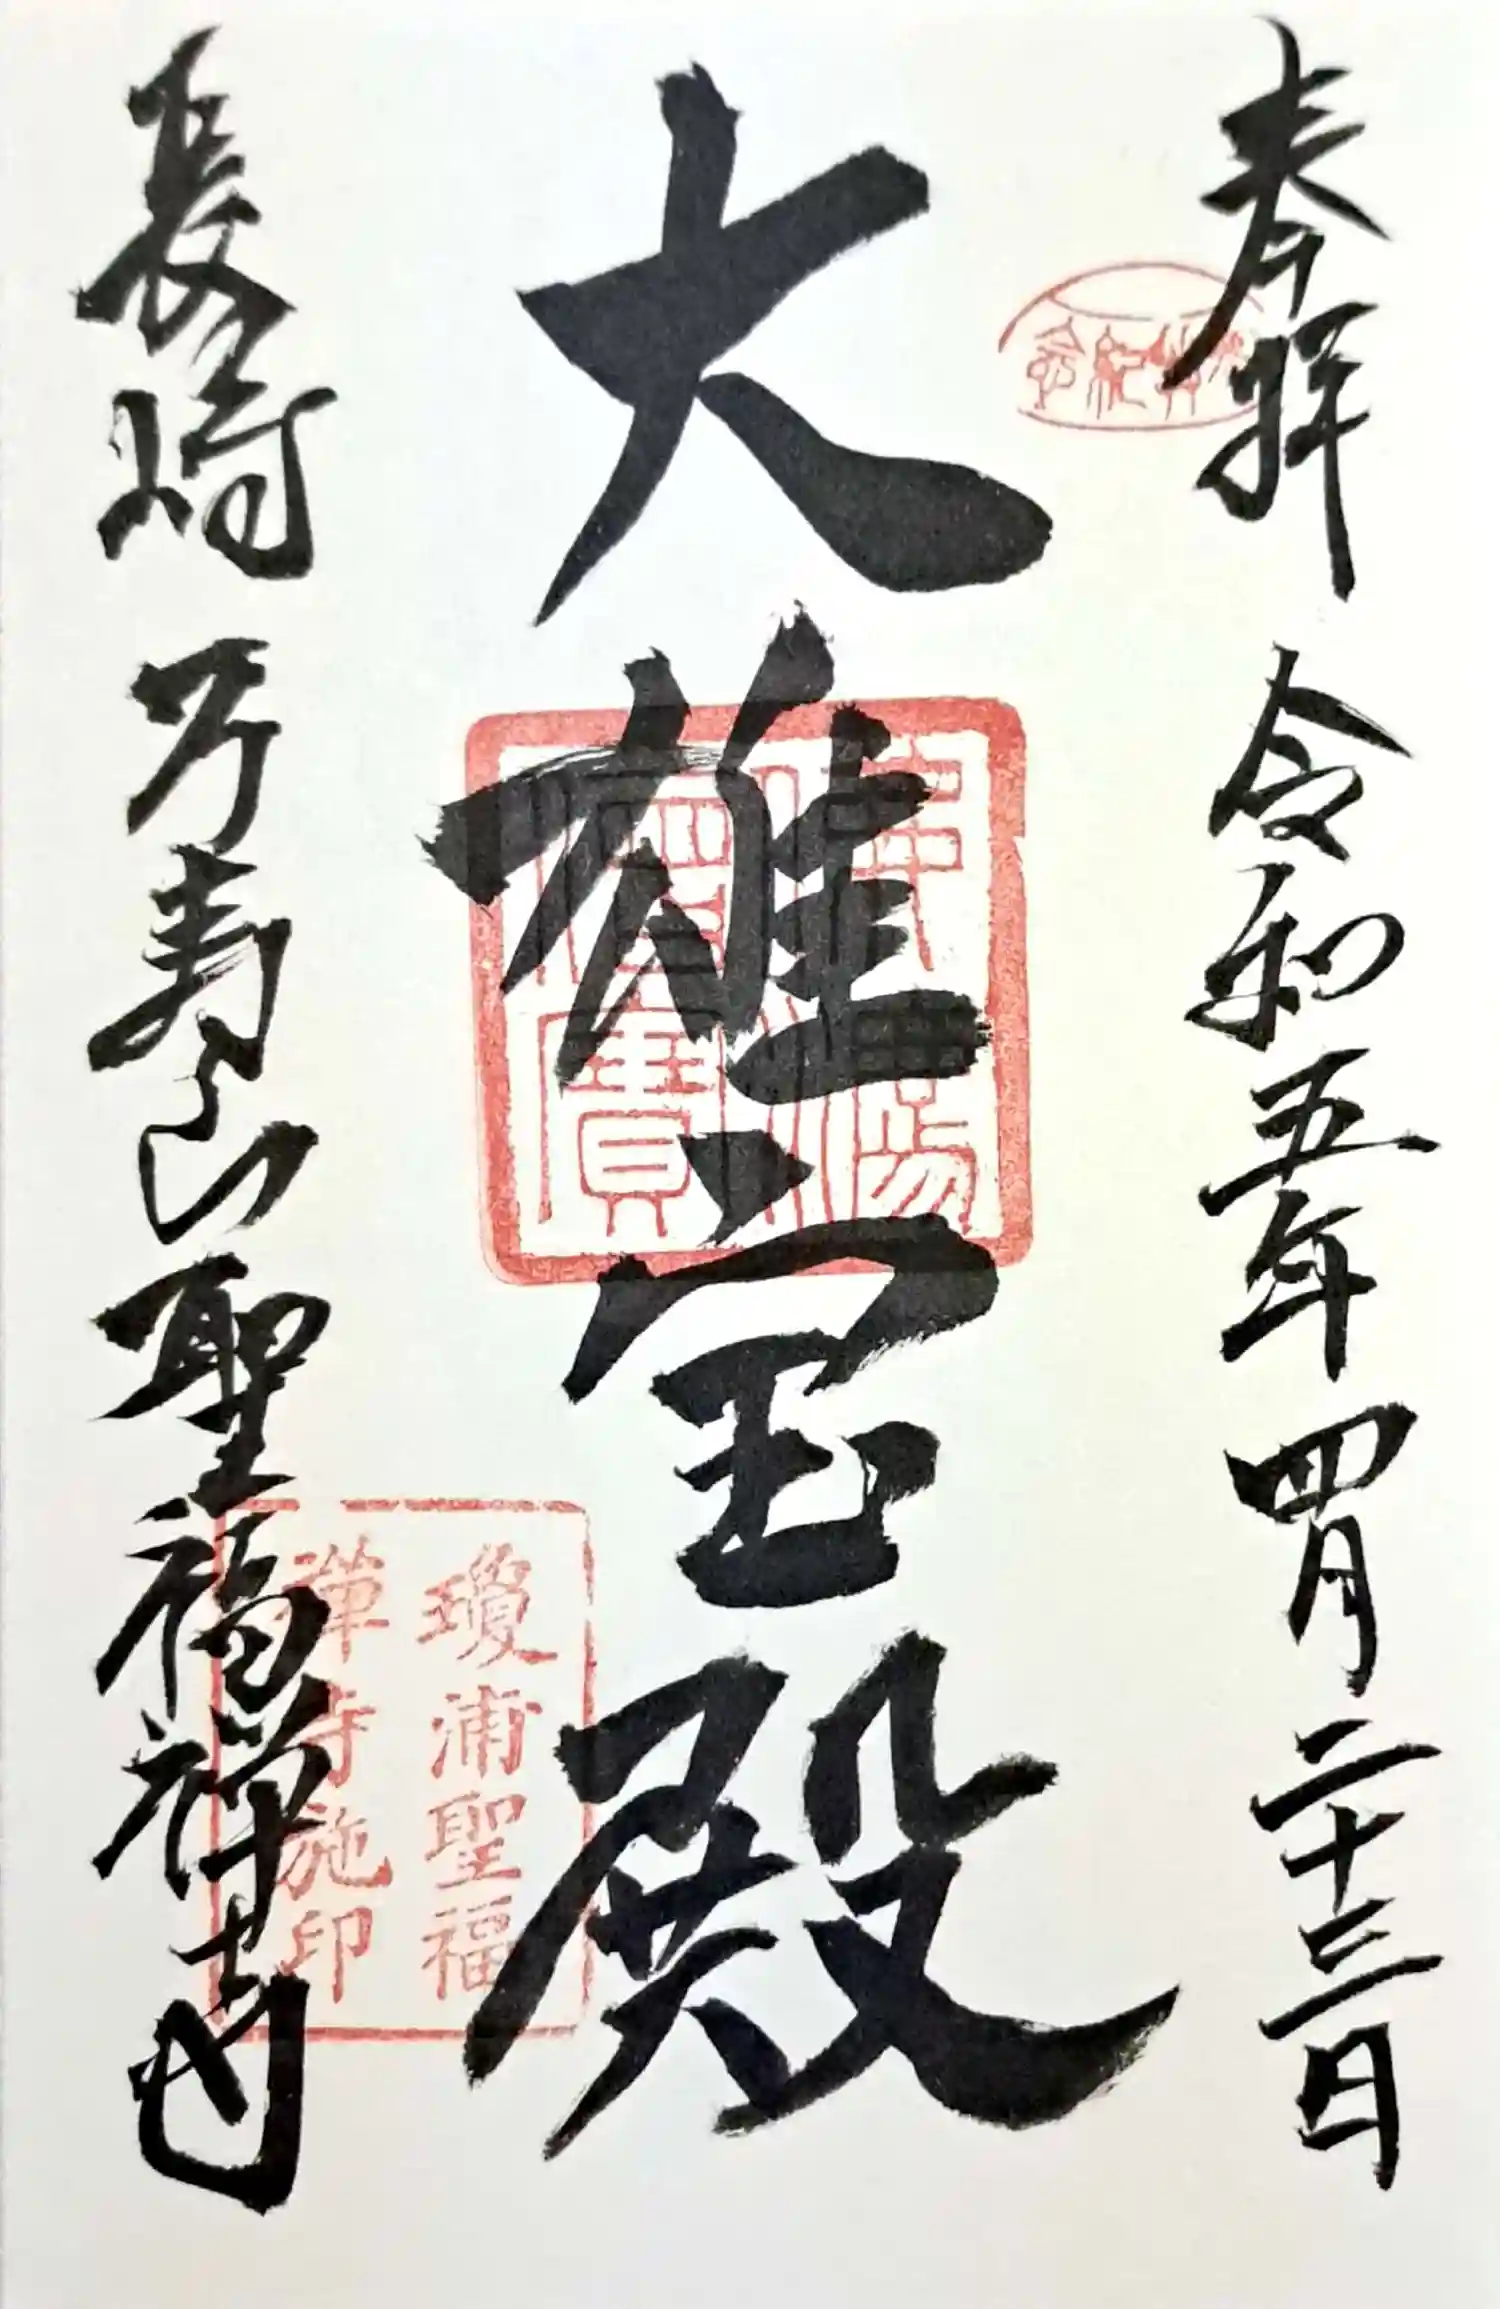 奉拝 令和五年四月二十三日
大雄宝殿
長崎 万寿山聖福禅寺
紀念
佛法僧寳
瓊浦聖福
禅寺施印